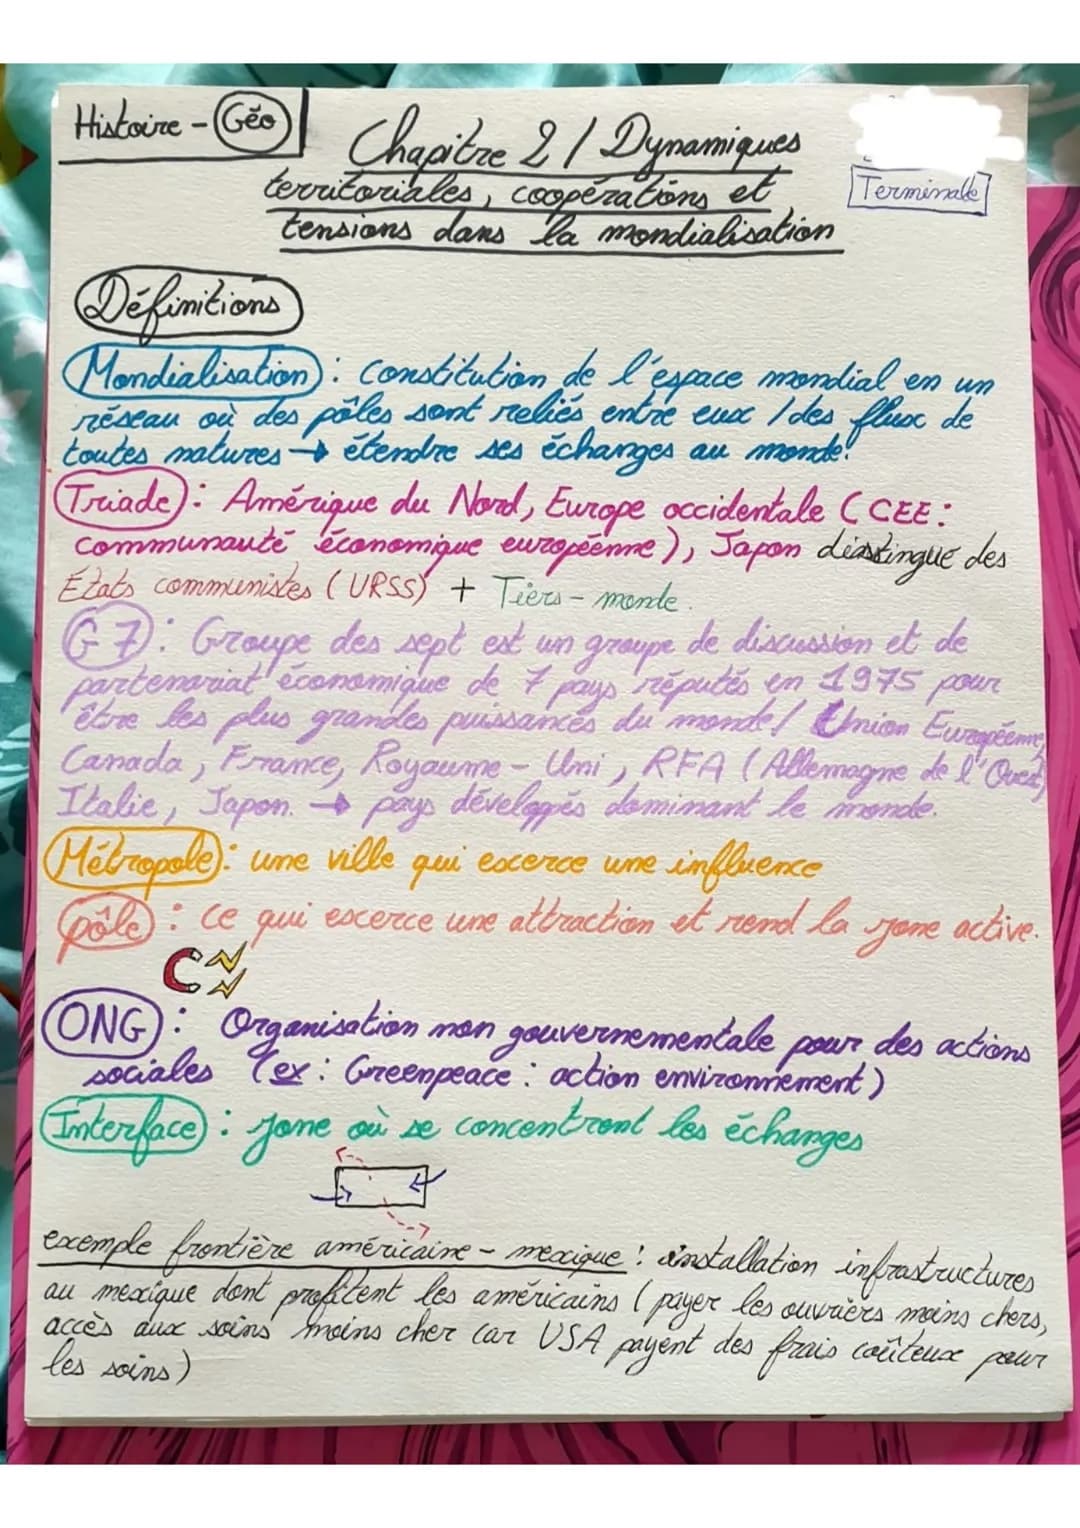 Histoire - Géo
Chapitre 2 / Dynamiques
territoriales, coopérations et
tensions dans la mondialisation
Terminale
Définitions
Mondialisation : constitution de l'espace mondial en un
réseau où des pôles sont reliés entre eux / des flux de
toutes natures → étendre ses échanges au monde!
Triade : Amérique du Nord, Europe occidentale (CEE :
communauté économique européenne), Japon distingue des
États communistes (URSS) + Tiers-monde.
G7 : Groupe des sept est un groupe de discussion et de
partenariat économique de 7 pays réputés en 1975 pour
être les plus grandes puissances du monde / Union Européenne,
Canada, France, Royaume-Uni, RFA (Allemagne de l'Ouest)
Italie, Japon. → pays développés dominant le monde.
Métropole : une ville qui exerce une influence
pôle : ce qui exerce une attraction et rend la zone active.
ONG : Organisation non gouvernementale pour des actions
sociales (ex : Greenpeace : action environnement)
Interface : zone où se concentrent les échanges
exemple frontière américaine - mexique : installation infrastructures
au mexique dont profitent les américains (payer les ouvriers moins chers,
accès aux soins moins cher car USA payent des frais coûteux pour
les soins)